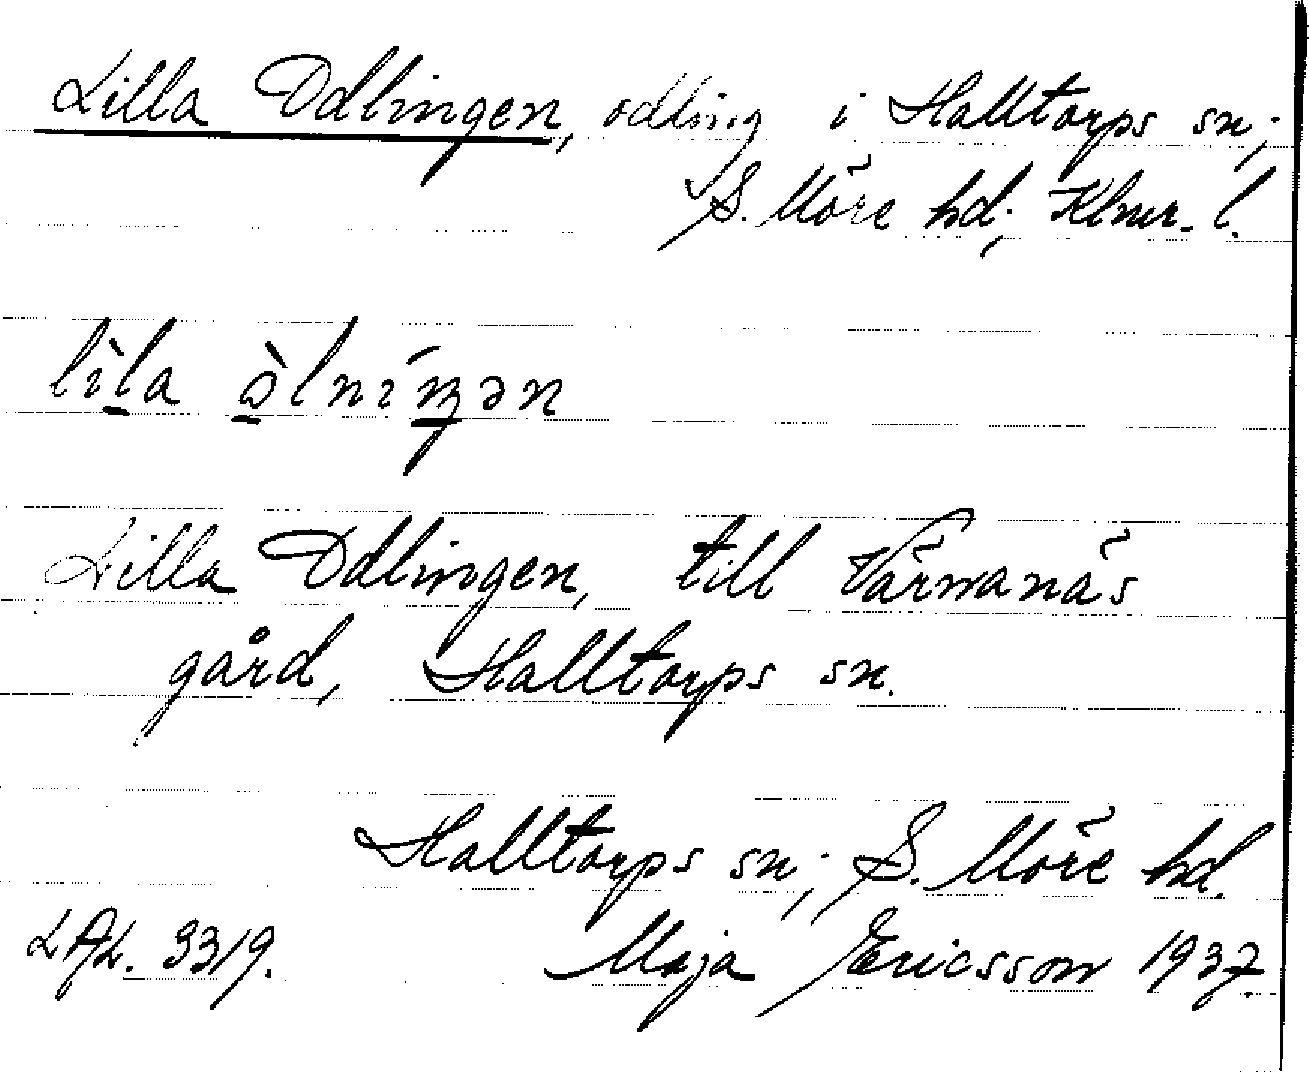 Lilla Odlingen, odling i Halltorps sn;
S. Möre hd; Klmr. l.
lìla òlníŋən
Lilla Odlingen, till Värnanäs
gård, Halltorps sn.
Halltorps sn; S. Möre hd.
LAL. 3319. Maja Ericsson 1937